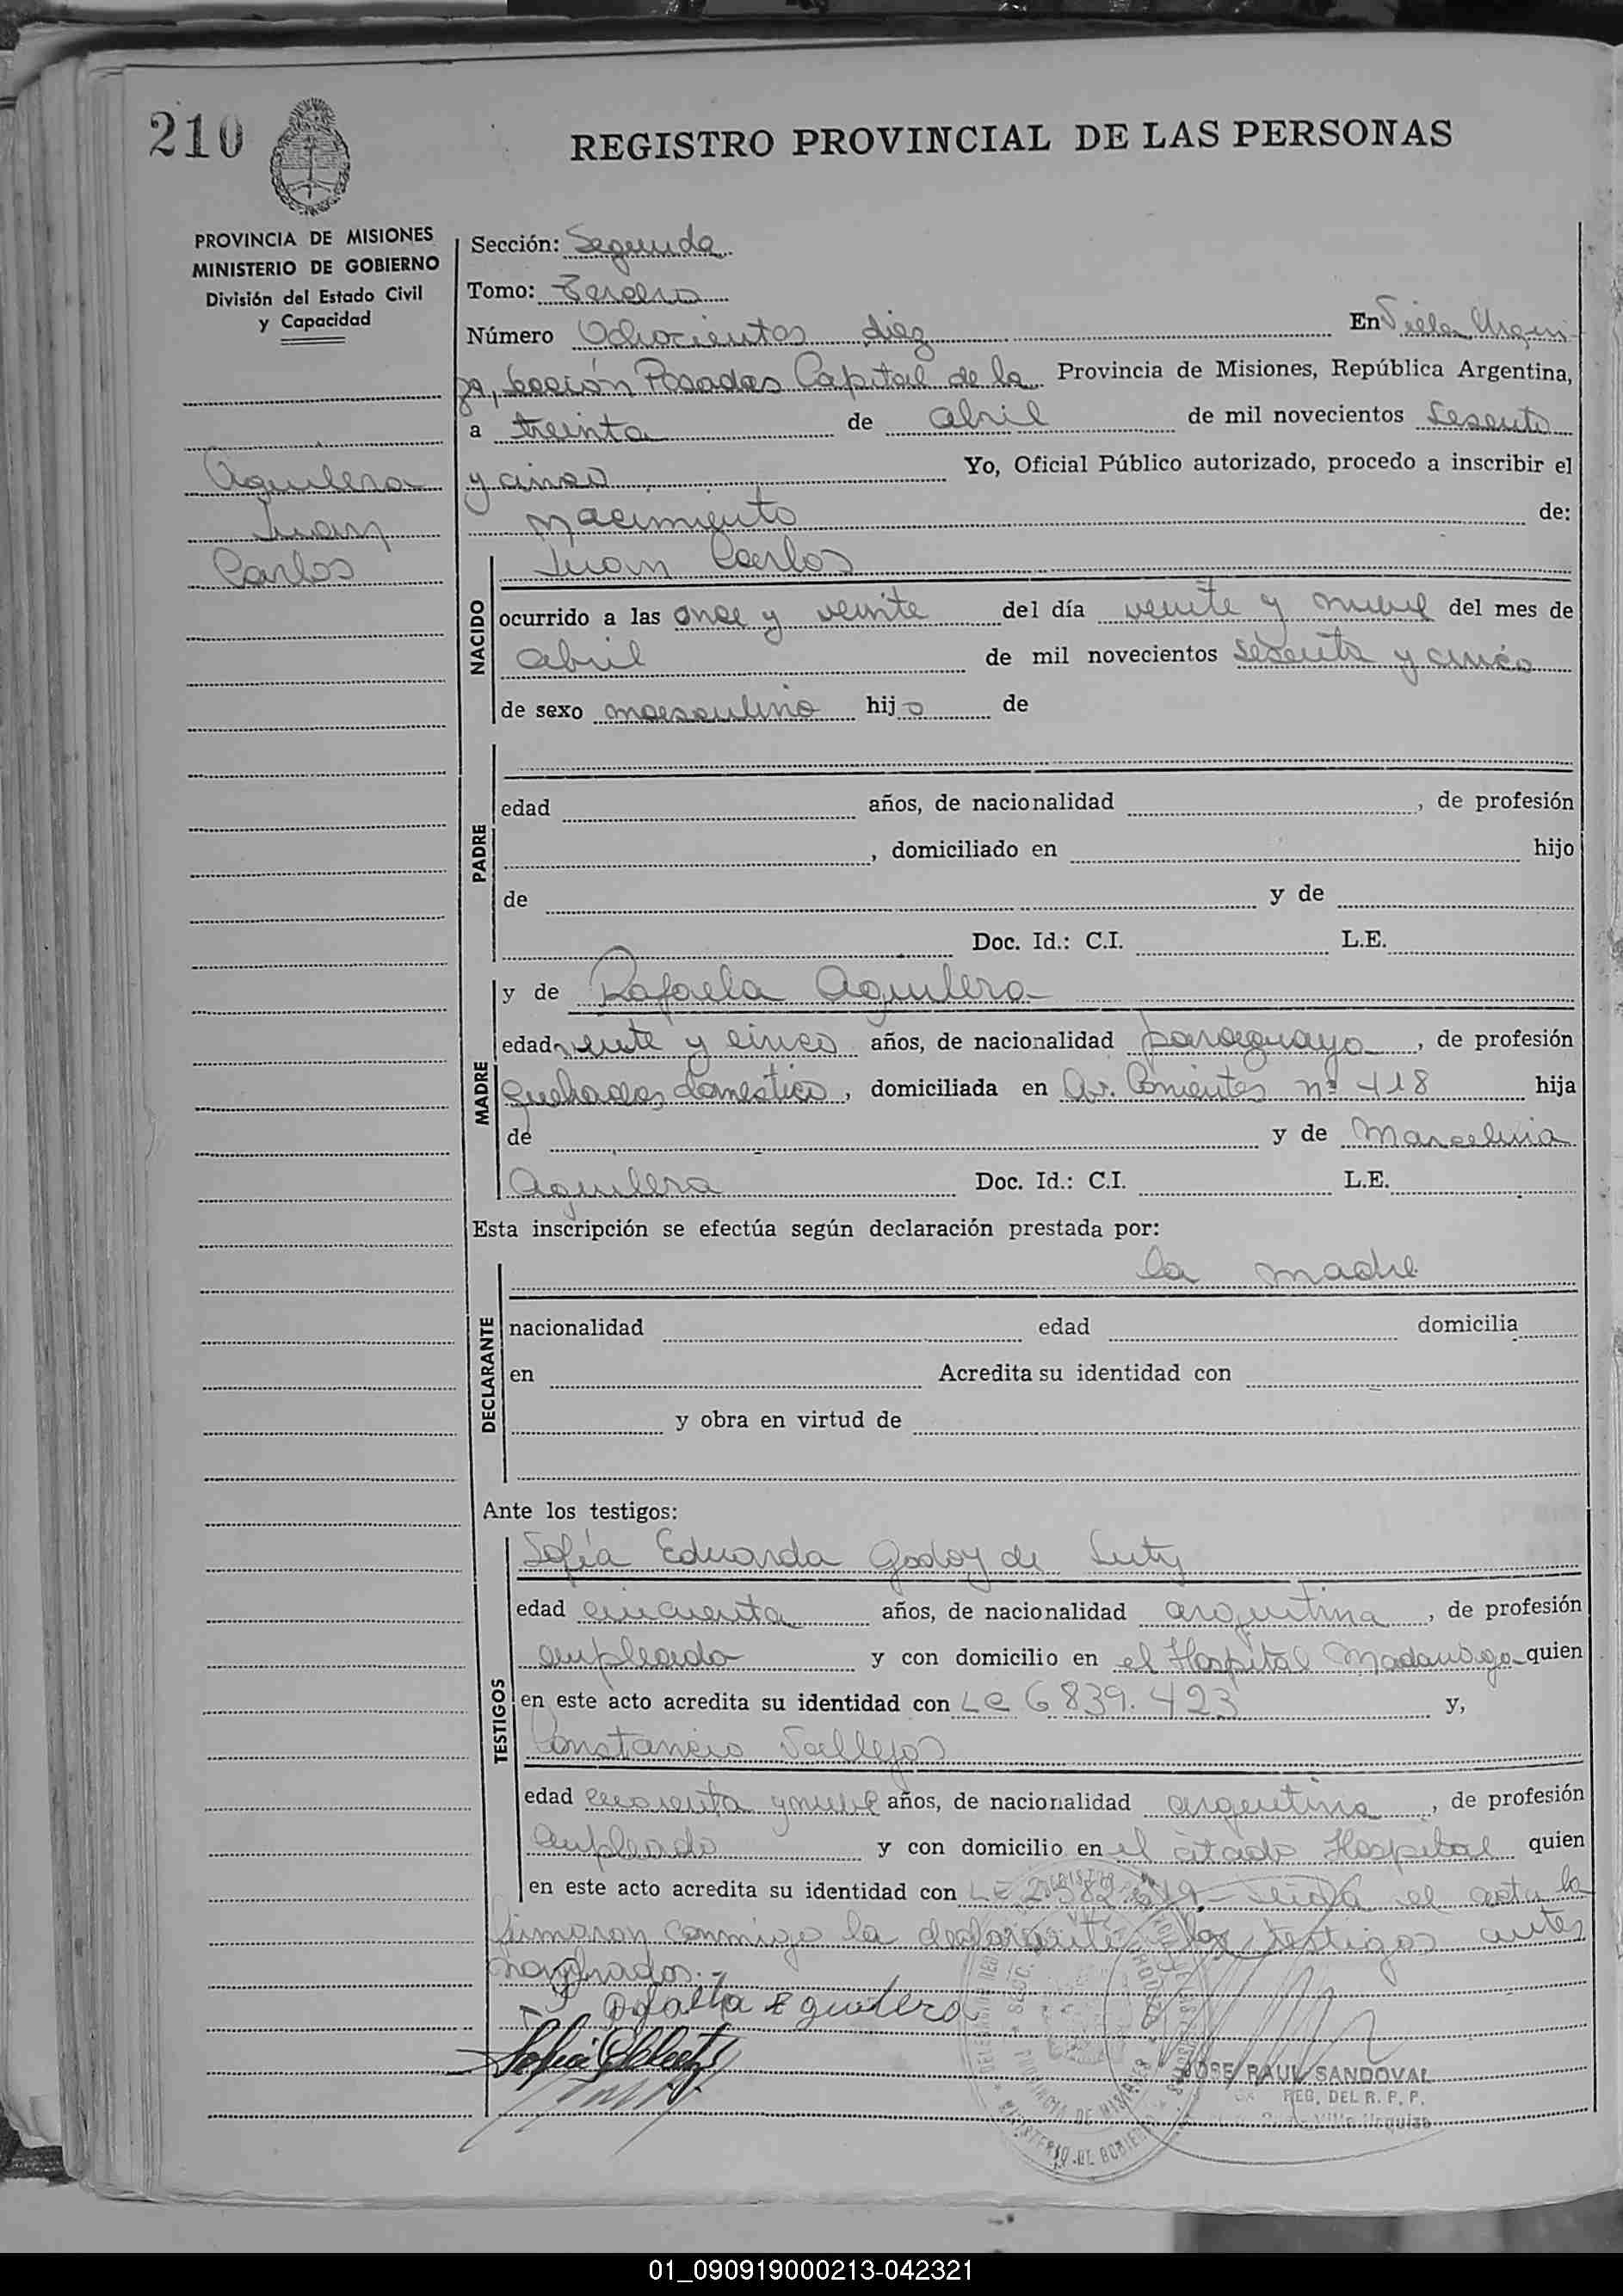 210
REGISTRO PROVINCIAL DE LAS PERSONAS
PROVINCIA DE MISIONES
MINISTERIO DE GOBIERNO
División del Estado Civil
y Capacidad
Aguilera
Juan
Carlos
Sección: Segunda
Tomo: Tercero
Número Ochocientos diez En Villa Urqui
za, Sección Posadas Capital de la Provincia de Misiones, República Argentina,
a treinta de abril de mil novecientos sesenta
y cinco Yo, Oficial Público autorizado, procedo a inscribir el
nacimiento de:
NACIDO
Juan Carlos
ocurrido a las once y veinte del día veinte y nueve del mes de
abril de mil novecientos sesenta y cinco
de sexo masculino hijo de
PADRE
edad años, de nacionalidad , de profesión
, domiciliado en hijo
de y de
Doc. Id.: C.I. L.E.
MADRE
y de Rafaela Aguilera
edad veinte y cinco años, de nacionalidad paraguaya, de profesión
quehaceres domestico, domiciliada en Av. Corrientes nº 418 hija
de y de Marcelina
Aguilera Doc. Id.: C.I. L.E.
Esta inscripción se efectúa según declaración prestada por:
DECLARANTE
la madre
nacionalidad edad domicilia
en Acredita su identidad con
y obra en virtud de
Ante los testigos:
TESTIGOS
Sofía Eduarda Godoy de
edad cincuenta años, de nacionalidad argentina, de profesión
empleada y con domicilio en el Hospital Madariaga quien
en este acto acredita su identidad con LC 6.839.423 y,
Constancio Vallejos
edad cuarenta y nueve años, de nacionalidad argentina, de profesión
empleado y con domicilio en el citado Hospital quien
en este acto acredita su identidad con LE Leida el acta la
firmaron conmigo la declarante y los testigos antes
nombrados.-
Rafaela Aguilera
JOSE RAUL SANDOVAL
REG. DEL R. P. P.
Villa Urquiza
PROVINCIA DE MISIONES
MINISTERIO DE GOBIERNO
01_090919000213-042321